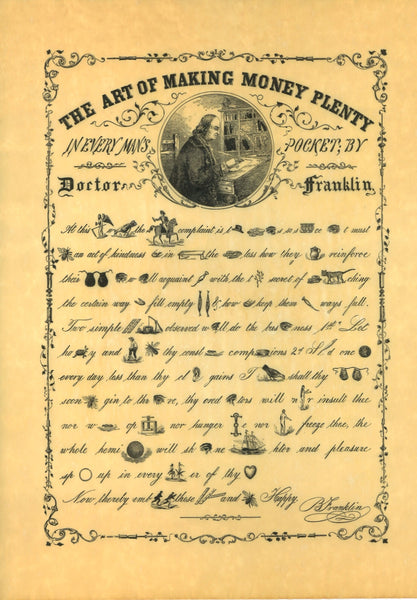 THE ART OF MAKING MONEY PLENTY
IN EVERY MAN'S POCKET; BY
Doctor Franklin
At this the complaint is so s ce t must
an act of kindness in the less how they reinforce
their w all acquaint with the secret of ching
the certain way fill empty & how keep them ways full.
Two simple observed w ll do the bus ness 1st Let
ho y and thy const companions 2d Sp d one
every day less than thy cl gains T shall thy
soon gin to thr ve, thy cred tors will n r insult thee
nor w op nor hunger e nor freeze thee, the
whole hemi will sh ne hter and pleasure
sp up in every er of thy
Now, thereby emb these and Happy.
B Franklin